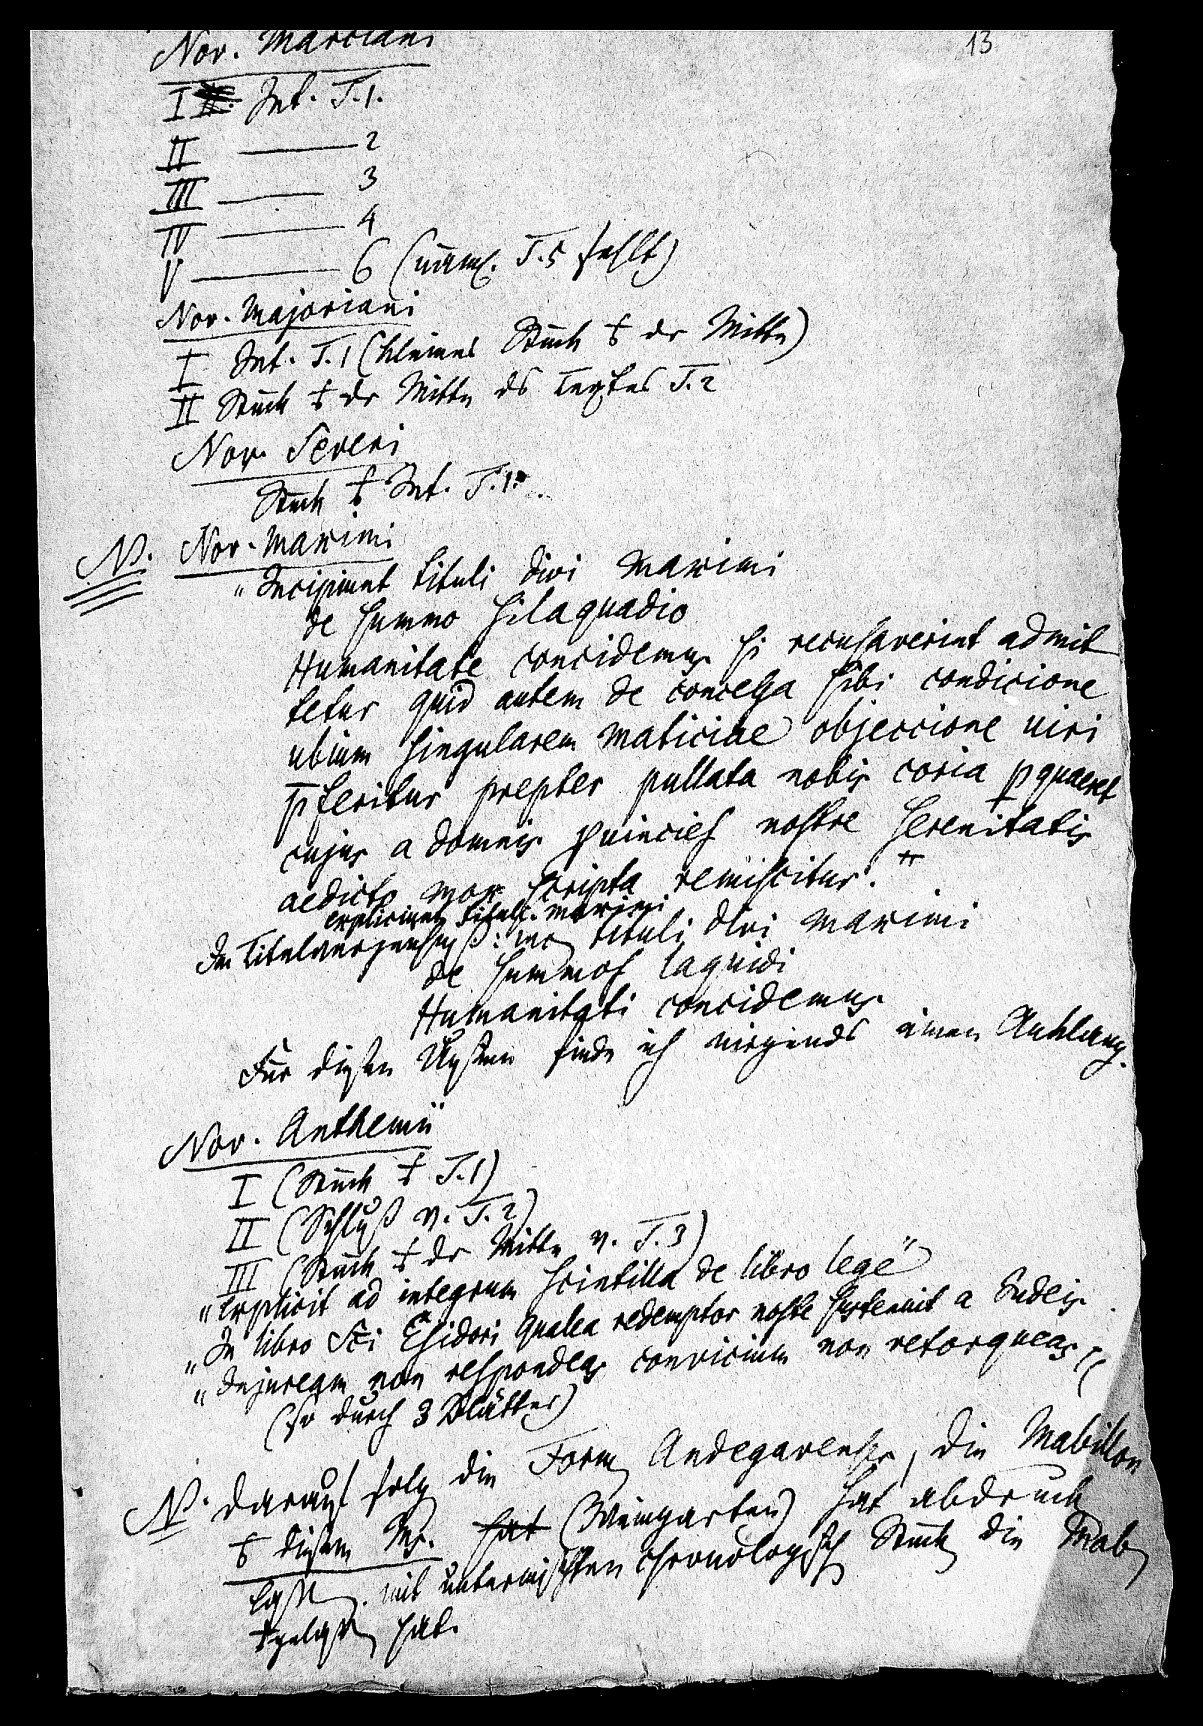 13
Nov. Marciani
I Int. T. 1.
II ——— 2
III ——— 3
IV ——— 4
V ——— 6 (näml. T. 5 fehlt)
Nov. Majoriani
I Int. T. 1 (kleines Stück der Mitte)
II Stück der Mitte ds Textes T. 2
Nov. Severi
Stück Int. T. 1.
N. Nov. Maximi
„Incipiunt tituli divi Maximi
de summo hilaquadio
Humanitate concidemus si recusaverint admit
tetur quid autem de concessa sibi condicione
ubium singularem maticiae objeccione uiri
p̄feritur prepter pullata nobis coria p quaeret
cujus a domnis princies nostre serenitatis
aedicto mox scripta remiscitur."
expliciunt tituli Maximi
Im Titelverzeichniß: Inc tituli divi Maximi
de summos laquidi
Humanitati concidemus
Für diesen Unsinn finde ich nirgends einen Anklang.
Nov. Anthemii
I (Stück T. 1)
II (Schluß v. T. 2)
III (Stück der Mitte v. T. 3)
„Explicit ad integrum scintilla de libro lege"
„In libro Sci Esidori qualea redemptor noste sustenuit a Iudeis
„Injuream non respondeas convicium non retorqueas"
(so durch 3 Blätter)
N. Darauf folg die Form Andegavenses, die Mabillon
diesem Ms. hat (Weingarten) hat abdruck
mit untermischten chronologisch Stück die Mab
hat.